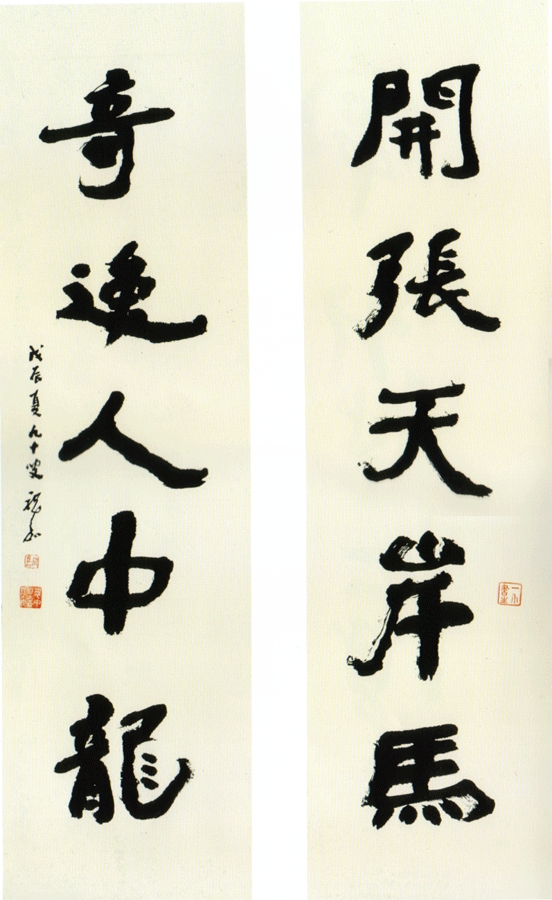 開張天岸馬
奇逸人中龍
戊辰夏九十叟